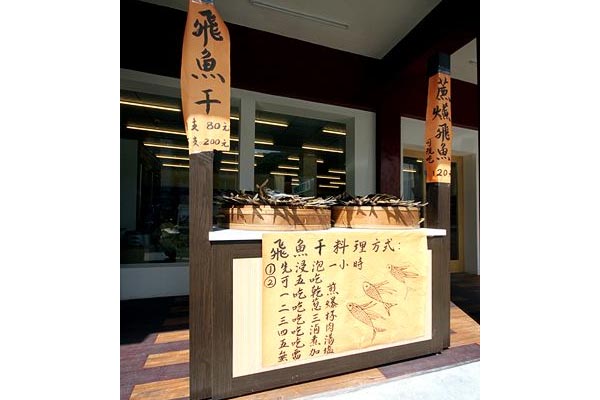 飛魚干
80元
200元
蔗燻飛魚
可現吃
120
飛魚干料理方式:
①先浸泡一小時
②可五吃
一吃乾煎
二吃蔥爆
三吃三杯
四吃 肉
五吃煮湯
無需加塩